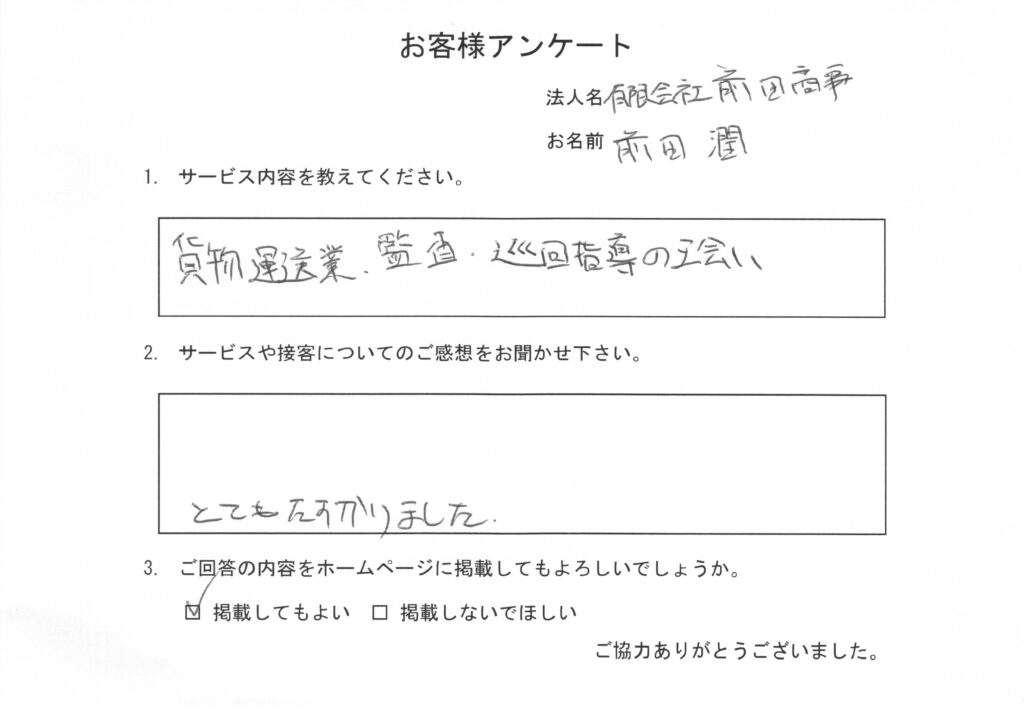 お客様アンケート
法人名 有限会社前田商事
お名前 前田 潤
1. サービス内容を教えてください。
貨物運送業、監査・巡回指導の立会い
2. サービスや接客についてのご感想をお聞かせ下さい。
とてもたすかりました.
3. ご回答の内容をホームページに掲載してもよろしいでしょうか。
☑ 掲載してもよい □ 掲載しないでほしい
ご協力ありがとうございました。